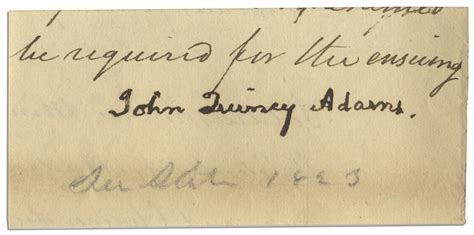 be required for the ensuing
John Quincy Adams.
1823